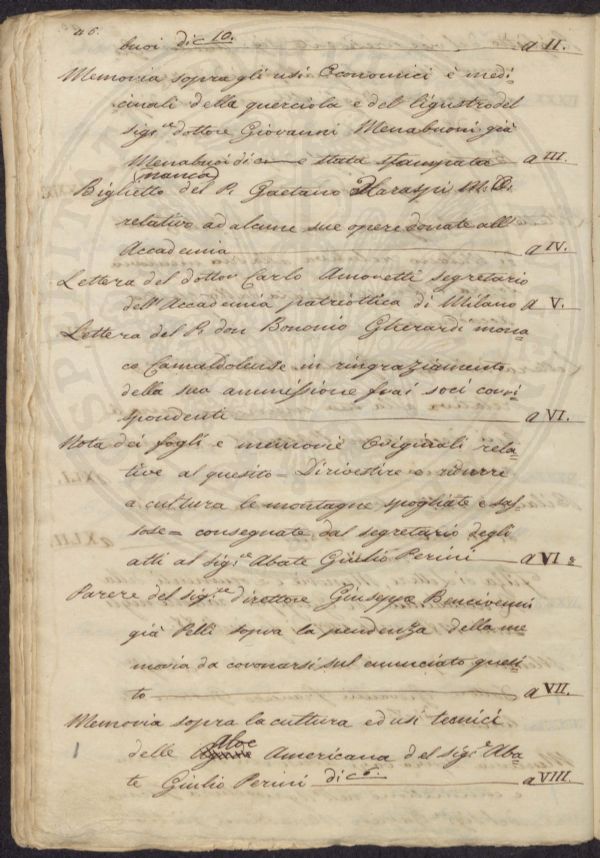 46.
buoi di c. 10. a II.
Memoria sopra gli usi Economici e medi
cinali della querciola e del ligustro del
sigr. dottore Giovanni Menabuoni già
Menabuoi di c. e stata stampata a III.
(manca)
Biglietto del P. Gaetano Haraspi M. O.
relativo ad alcune sue opere donate all'
Accademia a IV.
Lettera del dottor Carlo Amoretti segretario
dell'Accademia patriottica di Milano a V.
Lettera del P. don Bononio Gherardi mona-
co Camaldolense in ringraziamento
della sua ammissione frai soci corri-
spondenti a VI.
Nota dei fogli e memorie Originali rela-
tive al quesito = Dirivestire e ridurre
a cultura le montagne spogliate e sas-
sose = consegnate dal segretario degli
atti al sigre. Abate Giulio Perini a VI 2
Parere del sigre. direttore Giuseppe Bencivenni
già Pelli sopra la pendenza della me-
moria da coronarsi sul enunciato quesi-
to a VII.
Memoria sopra la cultura ed usi tecnici
delle Aloe Americana del sigre. Aba-
te Giulio Perini di c. 6. a VIII.